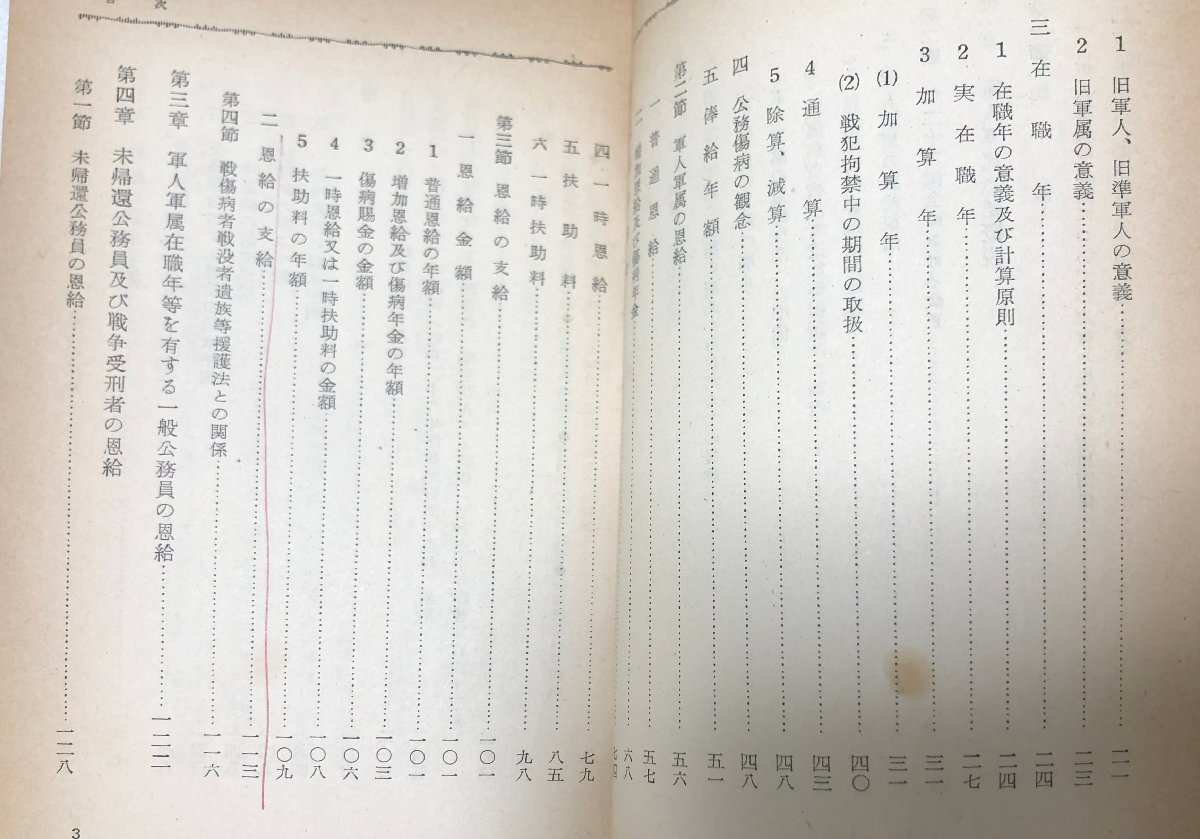 1 旧軍人、旧準軍人の意義……二一
2 旧軍属の意義……二三
三 在職年……二四
1 在職年の意義及び計算原則……二四
2 実在職年……二七
3 加算年……三一
(1) 加算年……三一
(2) 戦犯拘禁中の期間の取扱……四〇
4 通算……四三
5 除算、減算……四八
四 公務傷病の観念……四八
五 俸給年額……五一
第二節 軍人軍属の恩給……五六
一 普通恩給……五七
二 増加恩給及び傷病年金……六八
七四
目次
四 一時恩給……七九
五 扶助料……八五
六 一時扶助料……九八
第三節 恩給の支給……一〇一
一 恩給金額……一〇一
1 普通恩給の年額……一〇一
2 増加恩給及び傷病年金の年額……一〇三
3 傷病賜金の金額……一〇六
4 一時恩給又は一時扶助料の金額……一〇八
5 扶助料の年額……一〇九
二 恩給の支給……一一三
第四節 戦傷病者戦没者遺族等援護法との関係……一一六
第三章 軍人軍属在職年等を有する一般公務員の恩給……一二二
第四章 未帰還公務員及び戦争受刑者の恩給
第一節 未帰還公務員の恩給……一二八
3